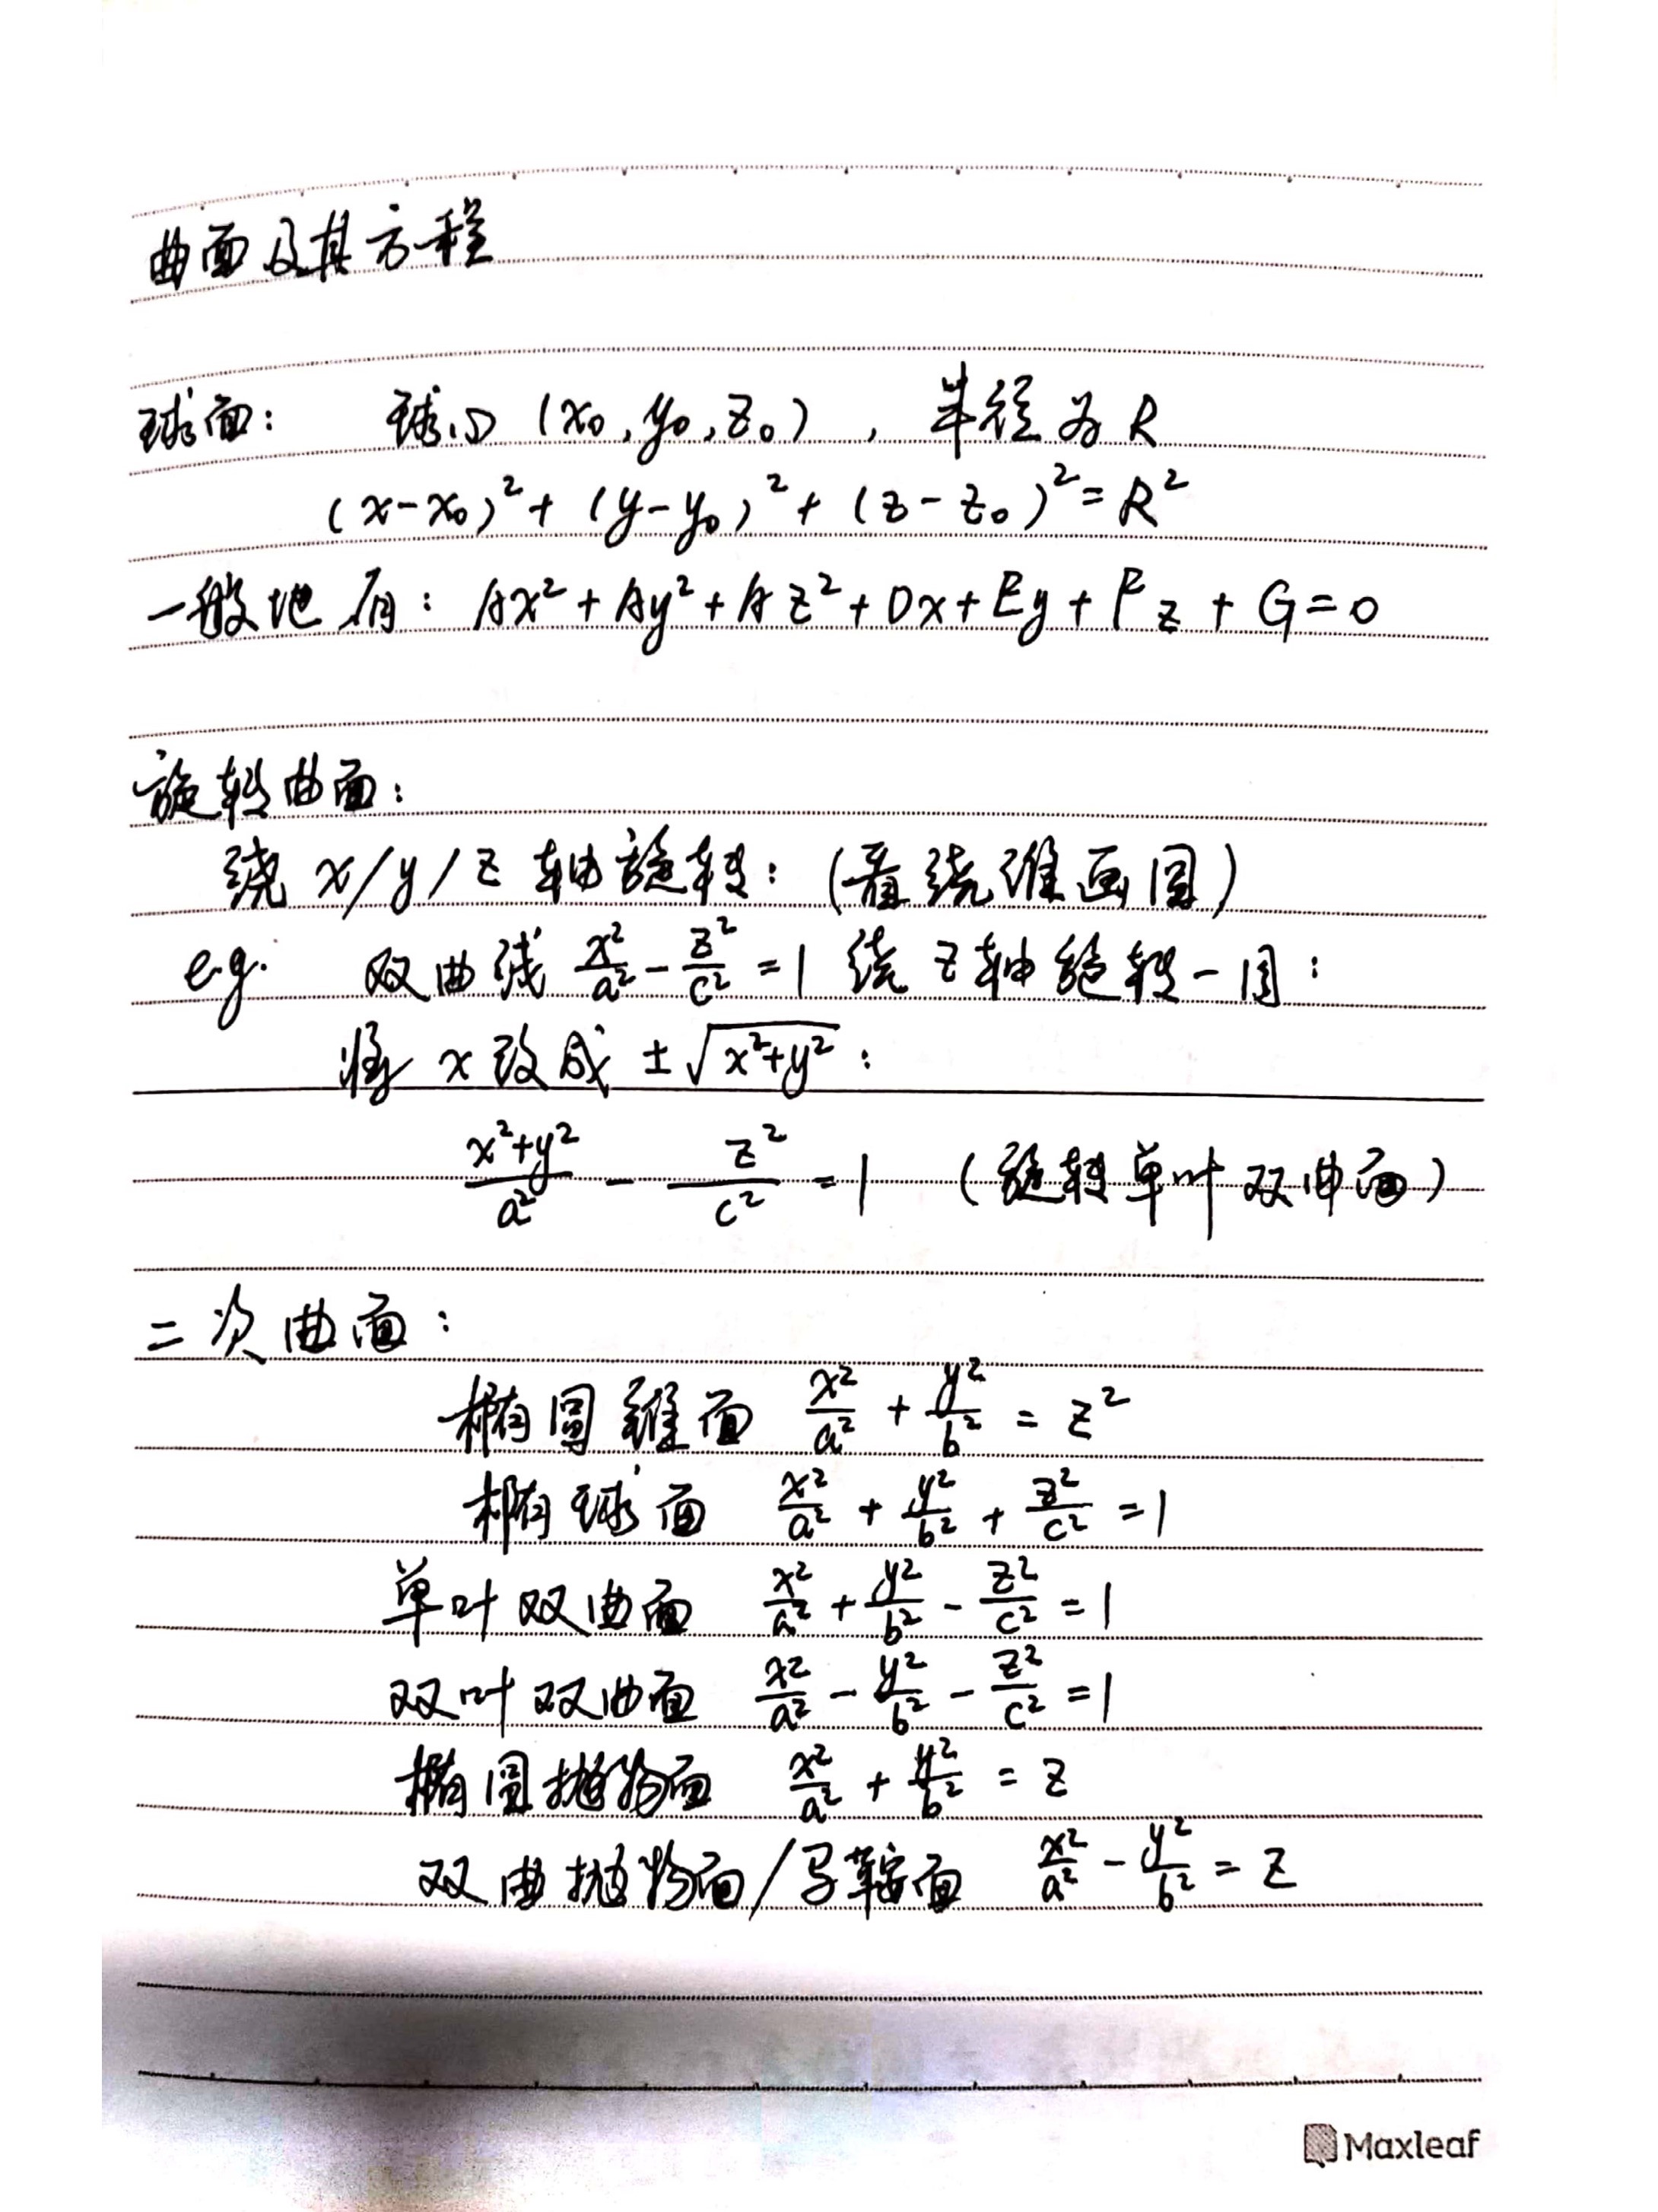 曲面及其方程
球面： 球心 (x₀, y₀, z₀) , 半径为 R
(x-x₀)² + (y-y₀)² + (z-z₀)² = R²
一般地有： Ax² + Ay² + Az² + Dx + Ey + Fz + G = 0
旋转曲面：
绕 x/y/z 轴旋转：(看绕谁画圆)
e.g. 双曲线 x²/a² - z²/c² = 1 绕 z 轴旋转一周：
将 x 改成 ±√(x²+y²) :
(x²+y²)/a² - z²/c² = 1 (旋转单叶双曲面)
二次曲面：
椭圆锥面 x²/a² + y²/b² = z²
椭球面 x²/a² + y²/b² + z²/c² = 1
单叶双曲面 x²/a² + y²/b² - z²/c² = 1
双叶双曲面 x²/a² - y²/b² - z²/c² = 1
椭圆抛物面 x²/a² + y²/b² = z
双曲抛物面/马鞍面 x²/a² - y²/b² = z
Maxleaf